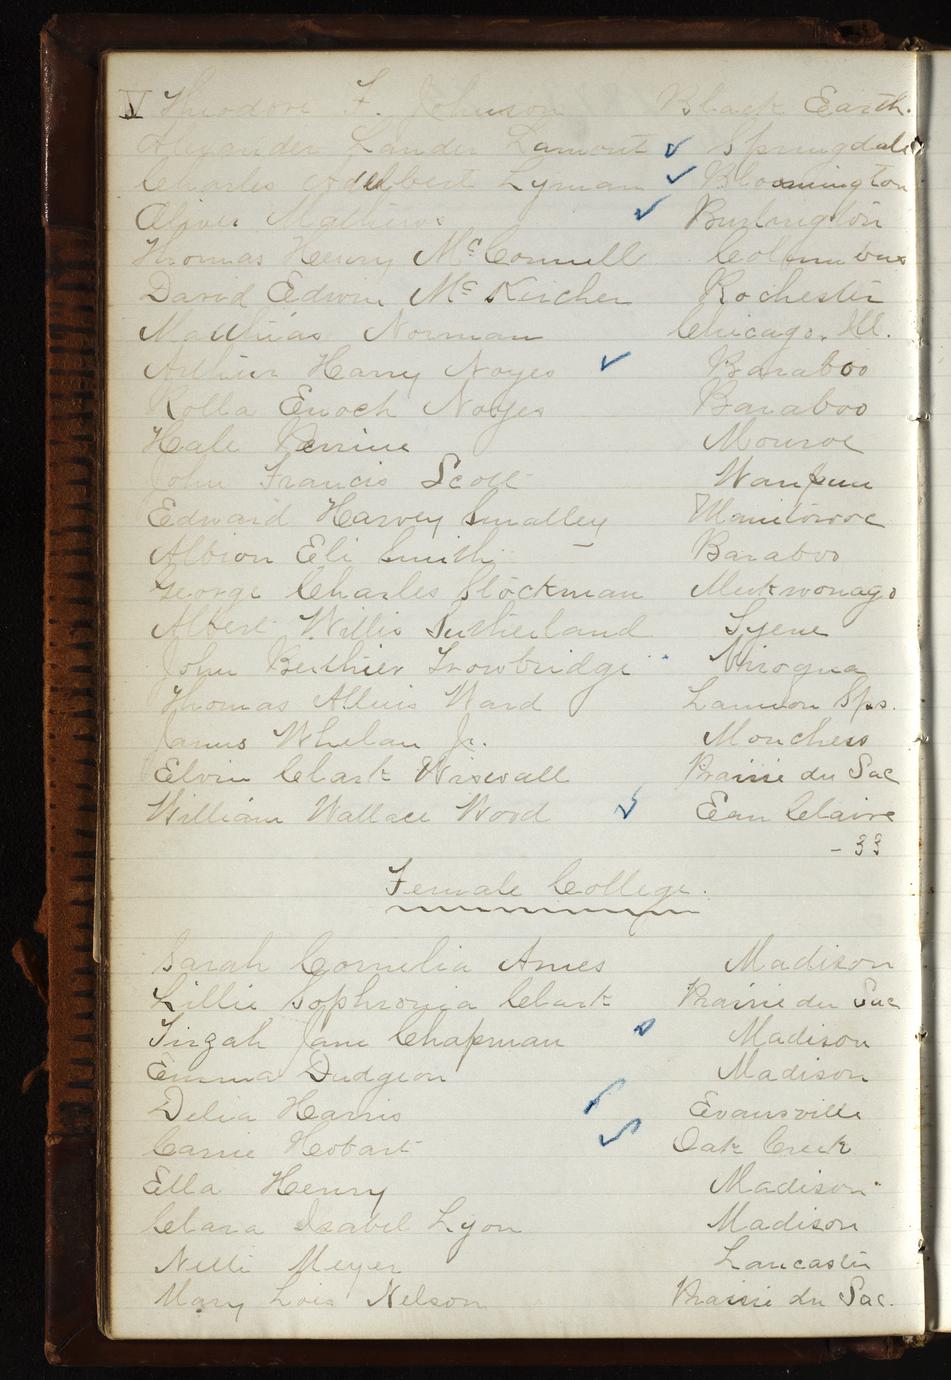 V Theodore F. Johnson Black Earth.
Alexander Lander Lamont Springdale
Charles Adelbert Lyman Bloomington
Oliver Mathews Burlington
Thomas Henry McConnell Columbus
David Edwin McKercher Rochester
Matthias Norman Chicago, Ill.
Arthur Harry Noyes Baraboo
Rolla Enoch Noyes Baraboo
Hale Perrine Monroe
John Francis Scott Waupun
Edward Harvey Smalley Manitowoc
Albion Eli Smith - Baraboo
George Charles Stockman Mukwonago
Albert Willis Sutherland Syene
John Berthier Trowbridge Viroqua
Thomas Ward Lannon Sps.
James Whelan Jr. Monches
Elvin Clark Wiswall Prairie du Sac
William Wallace Wood Eau Claire
- 33
Female College.
Sarah Cornelia Ames Madison
Lillie Sophronia Clark Prairie du Sac
Tirzah Jane Chapman Madison
Emma Dudgeon Madison
Delia Harris Evansville
Carrie Hobart Oak Creek
Ella Henry Madison
Clara Isabel Lyon Madison
Nelli Meyer Lancaster
Mary Lois Nelson Prairie du Sac.